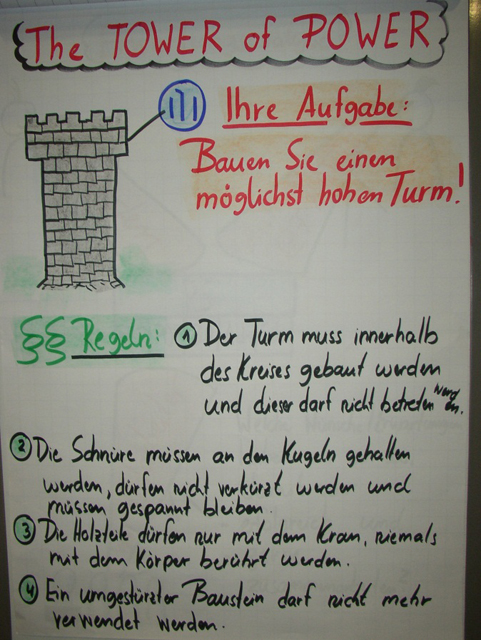 The TOWER of POWER
Ihre Aufgabe:
Bauen Sie einen
möglichst hohen Turm!
§§ Regeln:
1 Der Turm muss innerhalb
des Kreises gebaut werden
und dieser darf nicht betreten werden.
2 Die Schnüre müssen an den Kugeln gehalten
werden, dürfen nicht verkürzt werden und
müssen gespannt bleiben.
3 Die Holzteile dürfen nur mit dem Kran, niemals
mit dem Körper berührt werden.
4 Ein umgestürzter Baustein darf nicht mehr
verwendet werden.